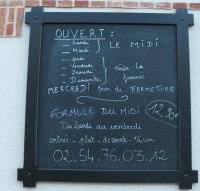 OUVERT :
— Lundi
— Mardi
LE MIDI
— Jeudi
— Vendredi
— Samedi
— Dimanche
Toute la
journée
MERCREDI Jour de FERMETURE
FORMULE DU MIDI 12,80€
Du Lundi au vendredi
entrée - plat - dessert - ¼ vin
02.54.76.03.12